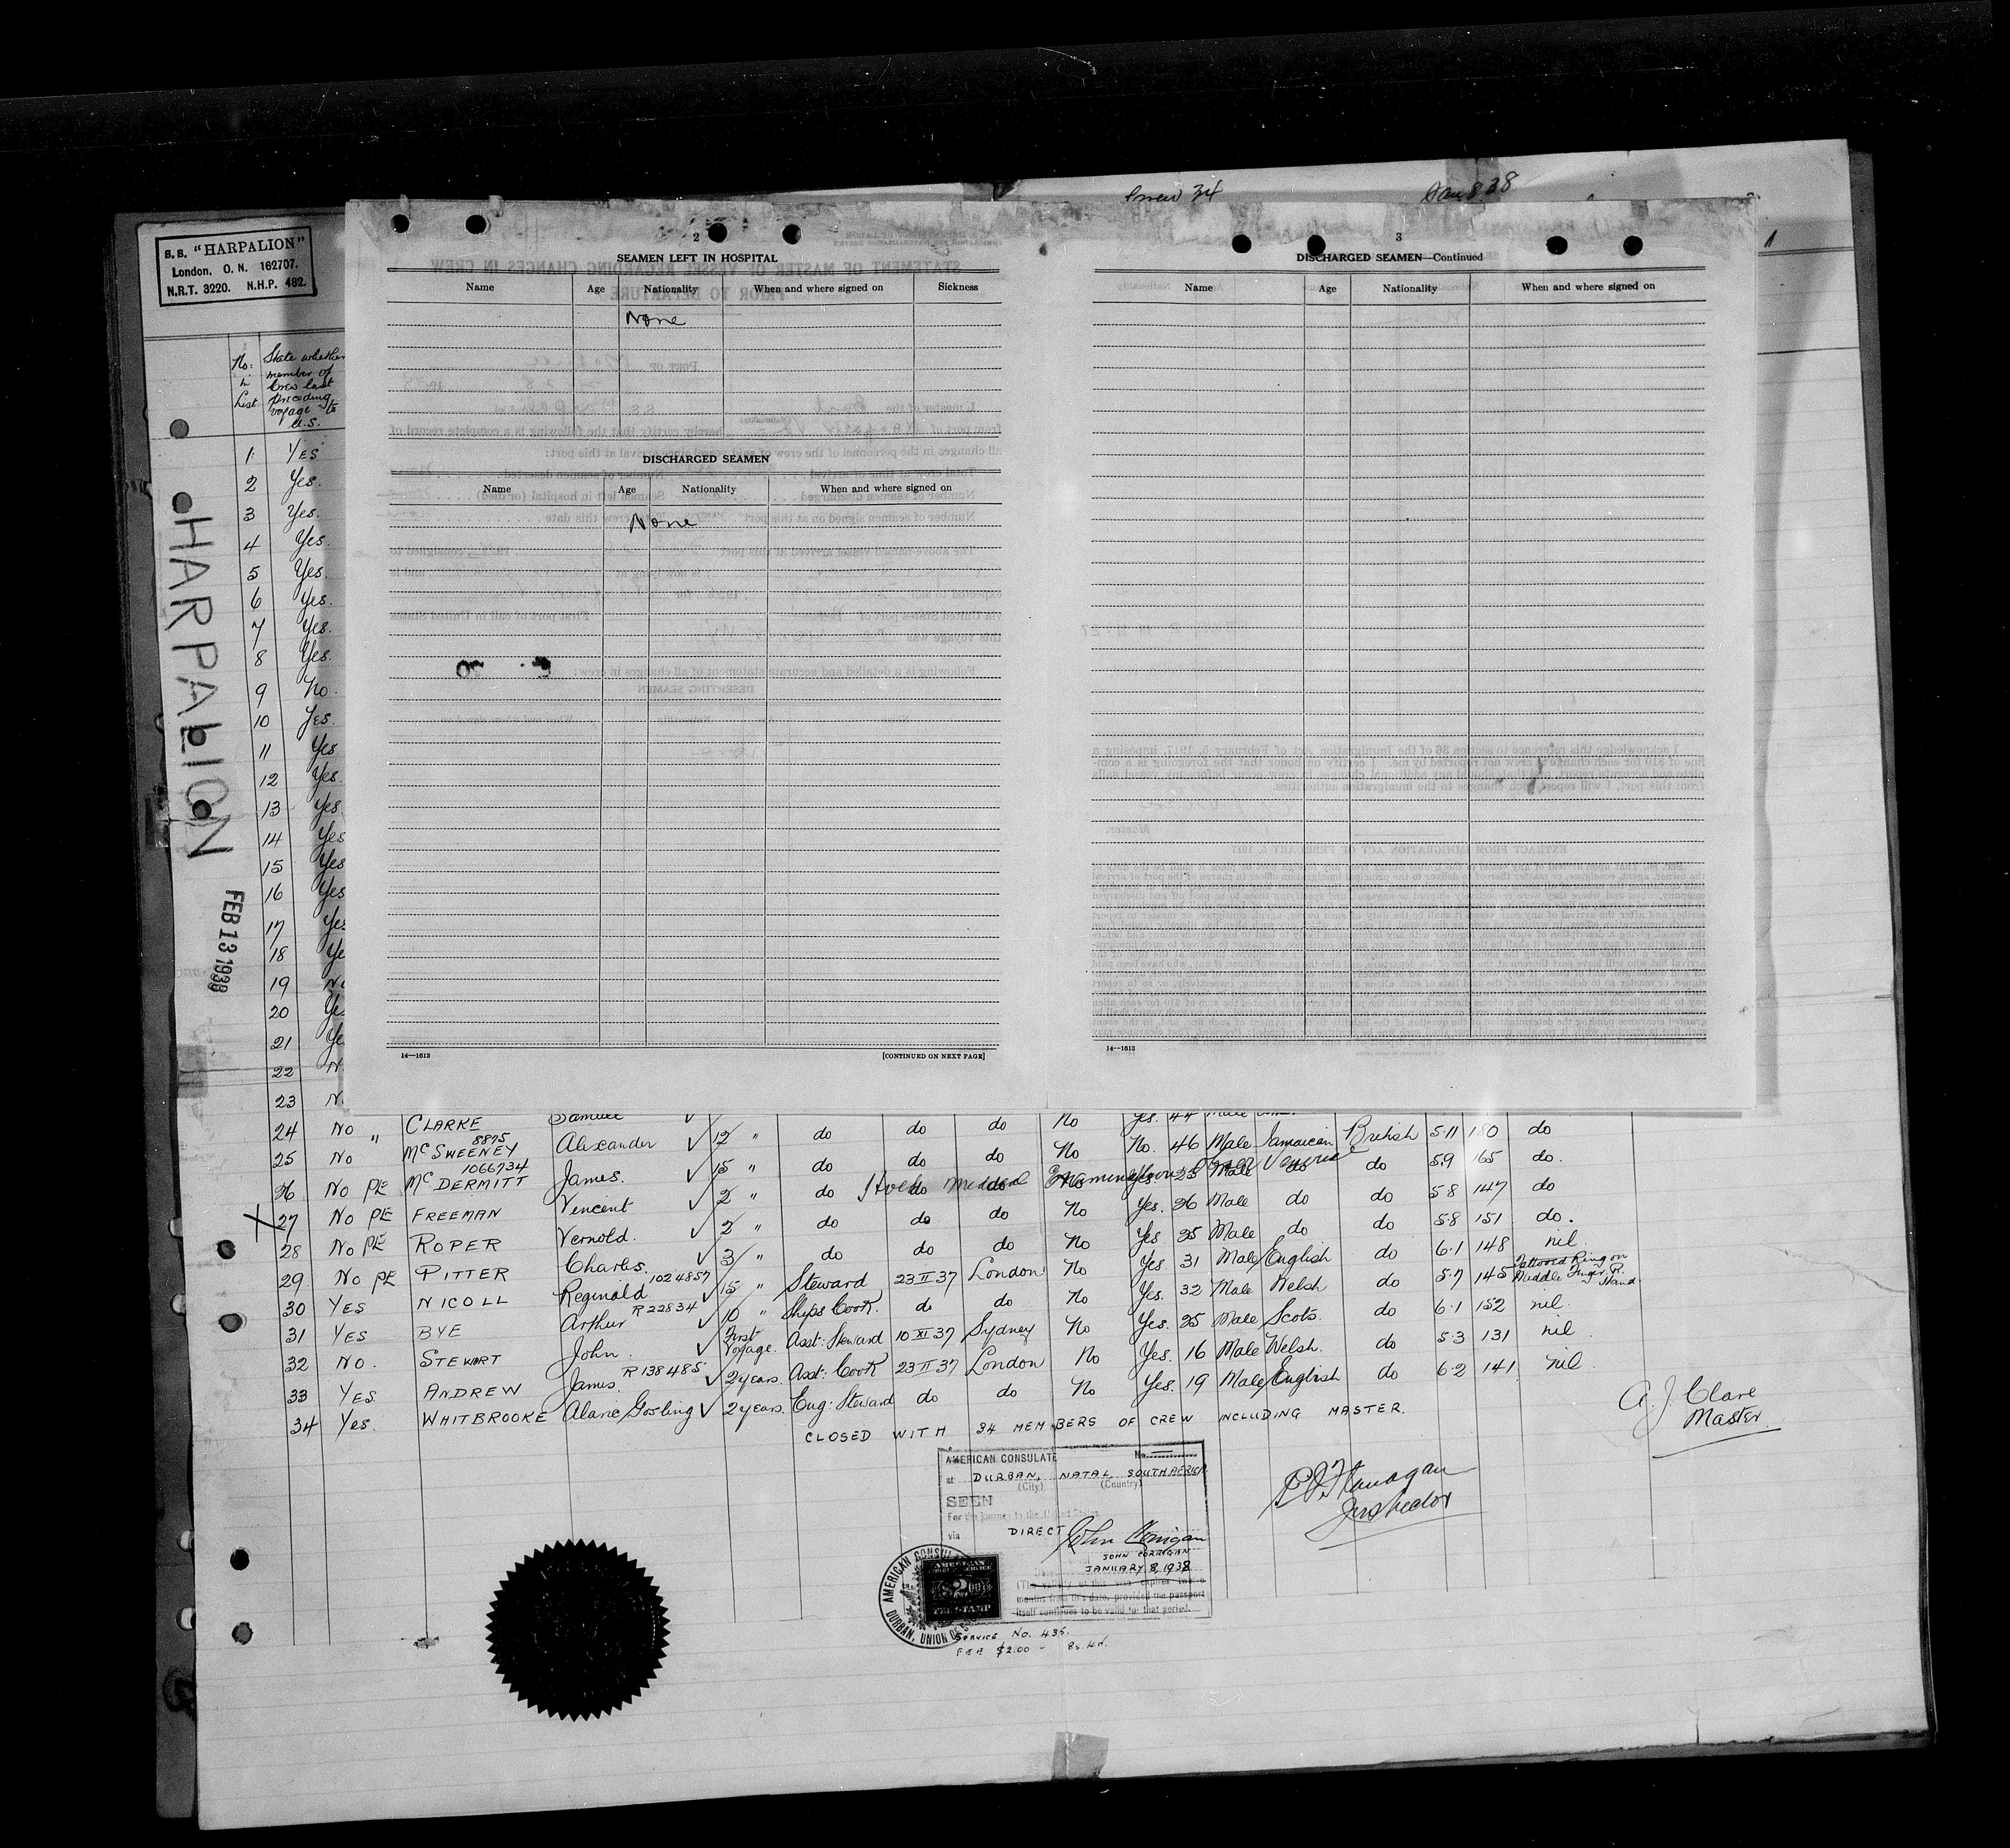 Crew 34 Jan 8 38
S.S. "HARPALION"
London. O.N. 162707.
N.R.T. 3220. N.H.P. 482.
HARPALION
FEB 13 1938
No: in List
State whether member of Crew last preceding voyage to U.S.
1 YES
2 Yes.
3 Yes.
4 Yes.
5 Yes.
6 Yes.
7 Yes.
8 Yes.
9 No.
10 Yes.
11 Yes
12 Yes.
13 Yes.
14 Yes
15 Yes
16 Yes
17 Yes
18 Ye
19 No
20 Ye
21 Ye
22 N
23 N.
2
SEAMEN LEFT IN HOSPITAL
Name Age Nationality When and where signed on Sickness
None
DISCHARGED SEAMEN
Name Age Nationality When and where signed on
None
14—1613 [CONTINUED ON NEXT PAGE]
3
DISCHARGED SEAMEN—Continued
Name Age Nationality When and where signed on
14—1613
24 No " CLARKE Samuel 12 " do do do No Yes. 44 Male
25 No McSWEENEY 8875 Alexander 15 " do do do No No. 46 Male Jamaican British 5·11 180 do
26 No PE McDERMITT 1066734 James. 2 " do do do No Yes 25 Male do do 5·9 165 do.
27 No PE FREEMAN Vincent 2 " do do do No Yes. 26 Male do do 5·8 147 do
28 No PE ROPER Vernold. 3 " do do do No Yes. 25 Male do do 5·8 151 do.
29 No PE PITTER Charles. 15 " Steward 23 II 37 London No Yes. 31 Male English do 6·1 148 nil
30 YES NICOLL Reginald 1024857 10 " Ships Cook. do do No Yes. 32 Male Welsh do 5·7 145 Tattooed Ring on Middle Finger R. Hand
31 YES BYE Arthur R22834 First Voyage. Asst: Steward 10 XI 37 Sydney No Yes. 25 Male Scots. do 6·1 152 nil.
32 No. STEWART John. 2 years. Asst: Cook 23 II 37 London No Yes. 16 Male Welsh. do 5·3 131 nil
33 YES ANDREW James. R138485 2 years. Eng: Steward do do No Yes. 19 Male English do 6·2 141 nil.
34 Yes. WHITBROOKE Alane Gosling
CLOSED WITH 34 MEMBERS OF CREW INCLUDING MASTER.
A. J. Clare
Master.
Inspector
AMERICAN CONSULATE No.
at DURBAN, NATAL SOUTH AFRICA
(City) (Country)
SEEN
For the journey to the United States
via DIRECT
John Corrigan
JOHN CORRIGAN
JANUARY 8, 1938
(The validity of this visa expires two
months from this date, provided the passport
itself continues to be valid for that period.
AMERICAN CONSULATE
DURBAN, UNION OF
AMERICAN
$2.00
FEE STAMP
SERVICE No. 435.
FEE $2.00 - 8s.4d.